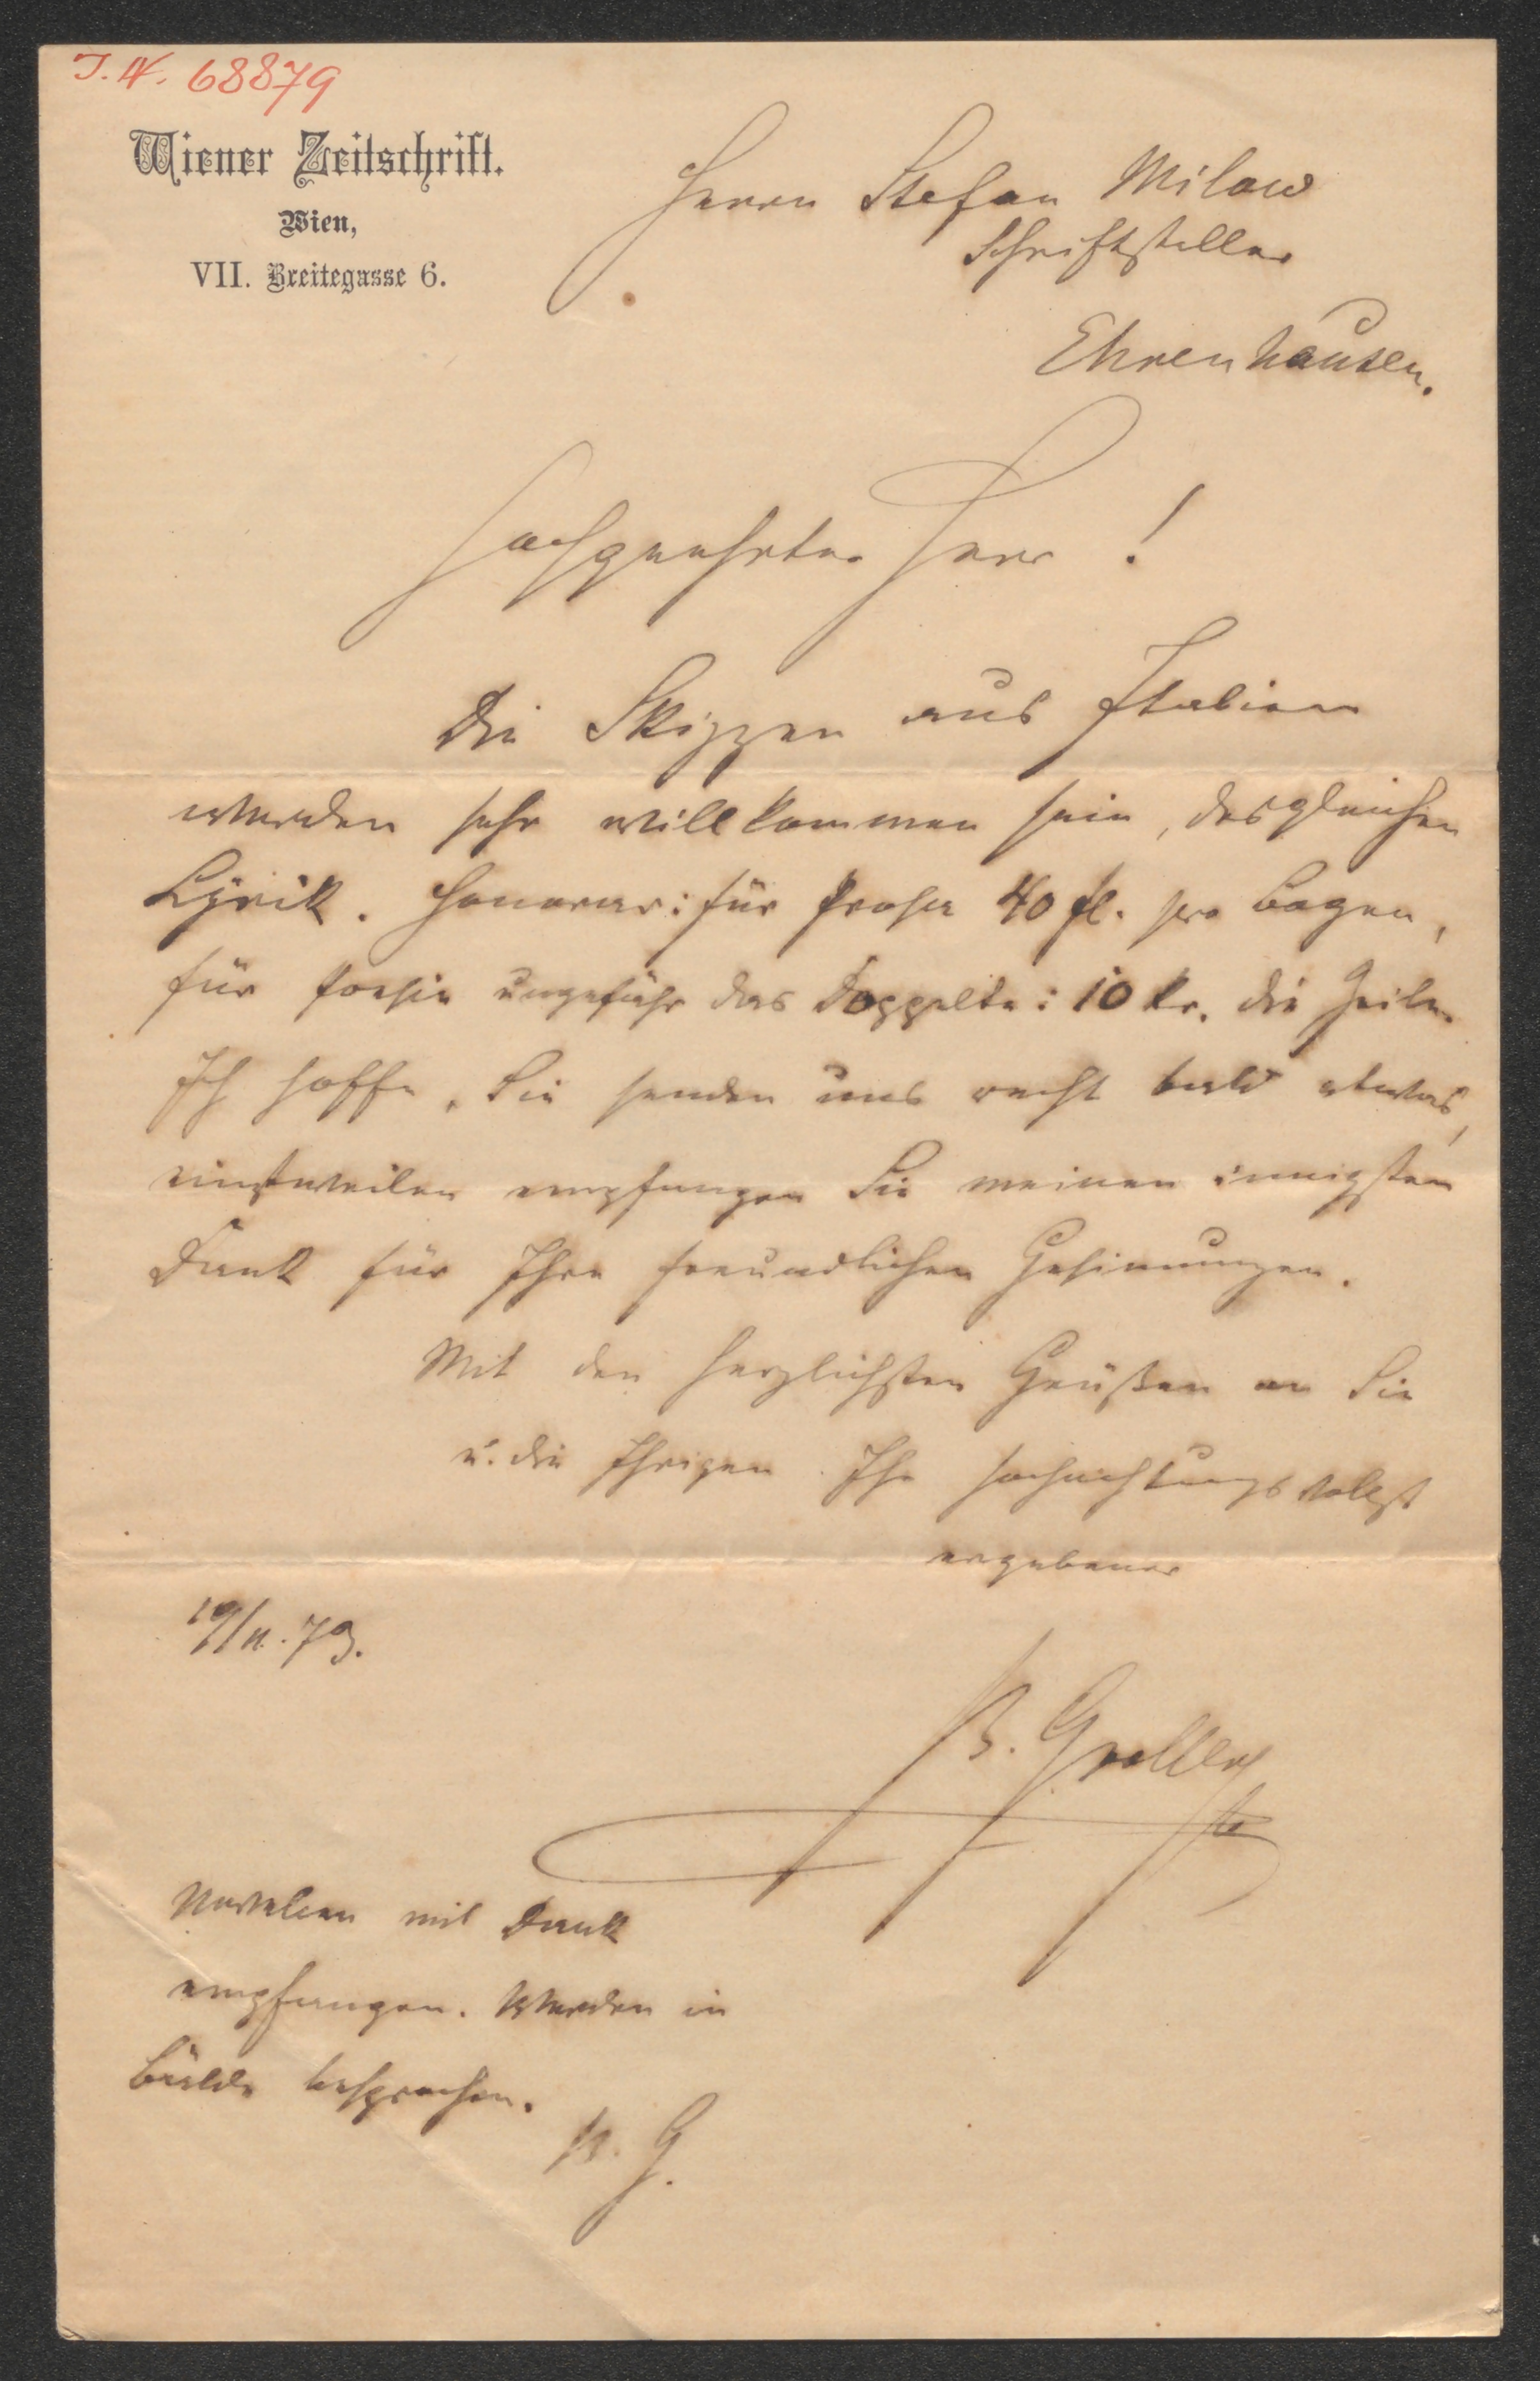 I. N. 68879
Wiener Zeitschrift.
Wien,
VII. Breitegasse 6.
Herrn Stefan Milow
Schriftsteller
Ehrenhausen.
Hochgeehrter Herr!
Die Skizzen aus Italien
werden sehr willkommen sein, desgleichen
Lyrik. Honorar: für Prosa 40 fl. pro Bogen,
für Poesie ungefähr das Doppelte: 10 kr. die Zeile.
Ich hoffe, Sie senden uns recht bald etwas,
einstweilen empfangen Sie meinen innigsten
Dank für Ihre freundlichen Gesinnungen.
Mit den herzlichsten Grüßen an Sie
u. die Ihrigen Ihr hochachtungsvollst
ergebener
19/11. 79.
B. Groller
Novellen mit Dank
empfangen. Werden in
Bälde besprochen.
B. G.